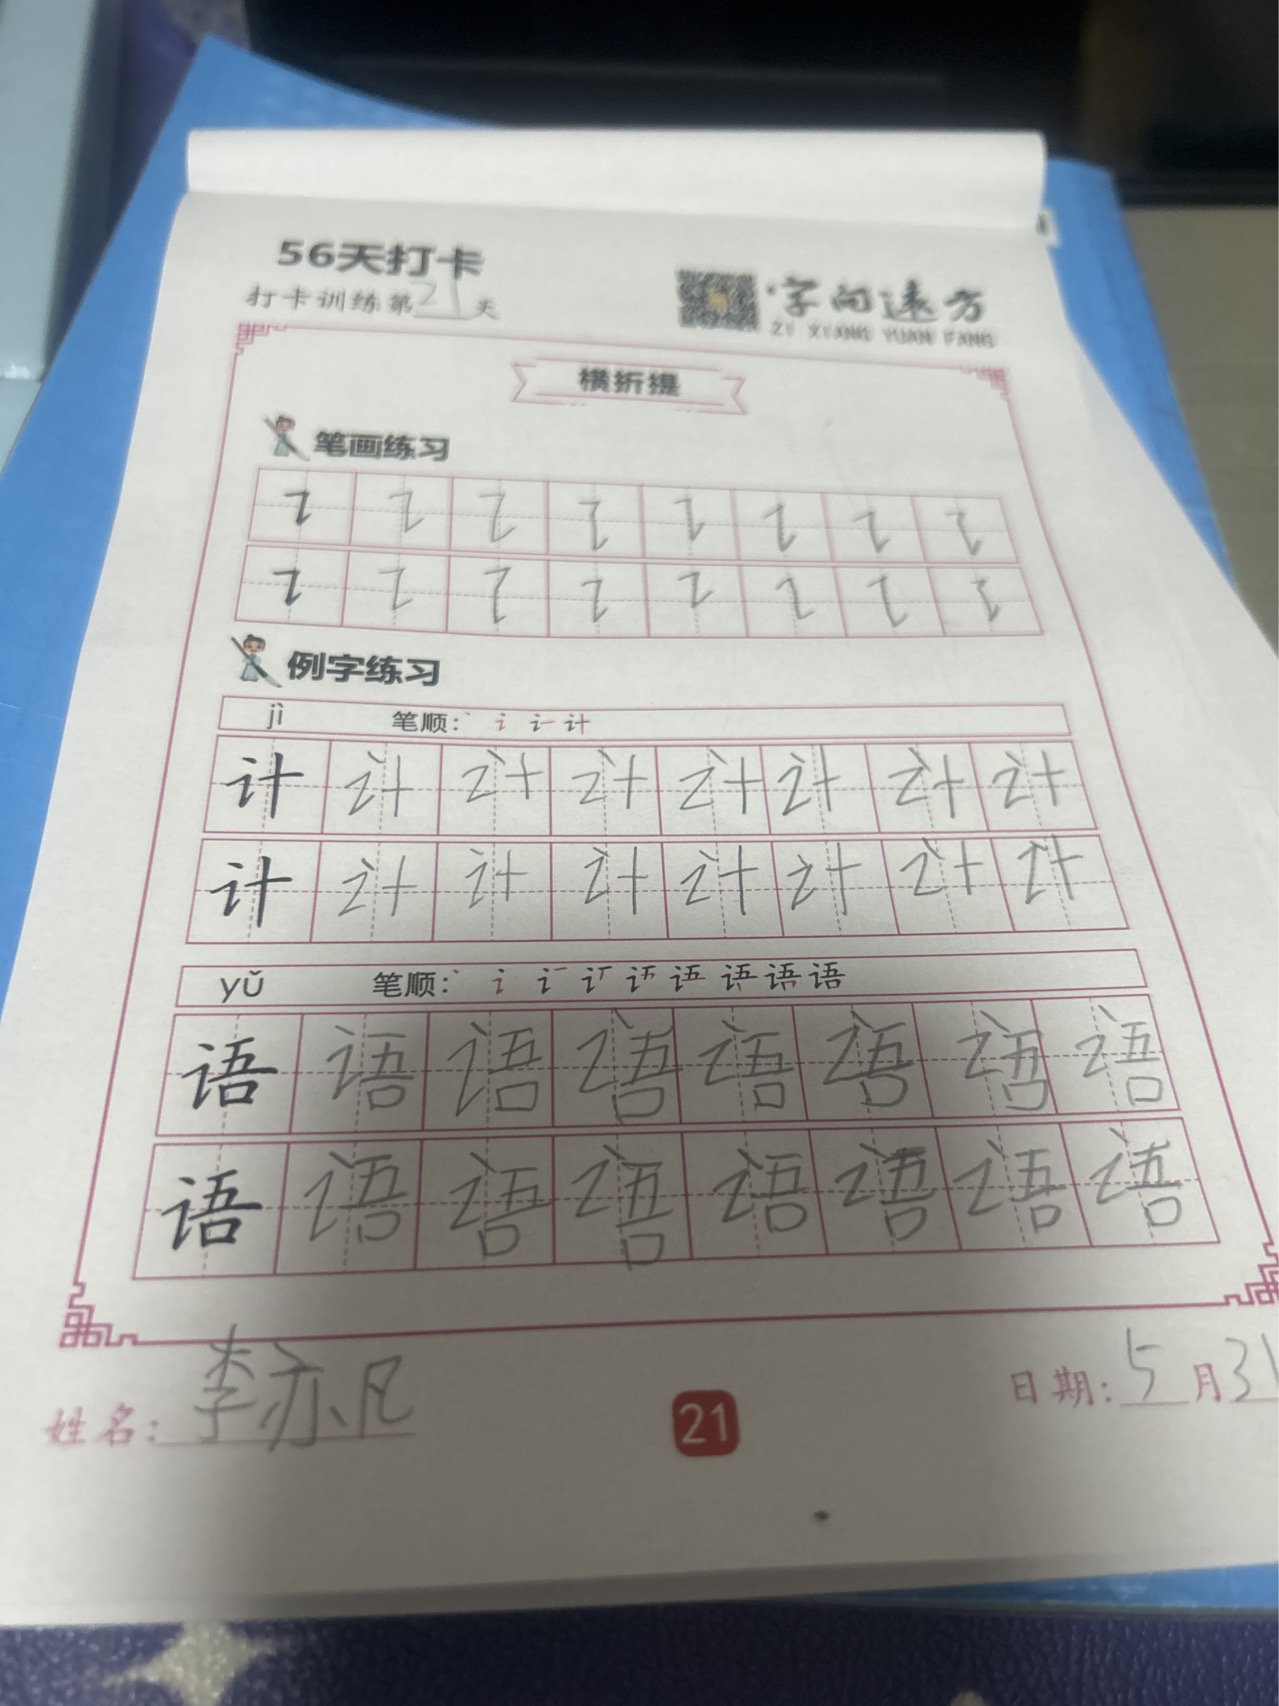 56天打卡
打卡训练第21天
字向远方
ZI XIANG YUAN FANG
横折提
笔画练习
例字练习
jì 笔顺: 计
计 计 计 计 计 计 计 计
计 计 计 计 计 计 计 计
yǔ 笔顺: 语 语 语
语 语 语 语 语 语 语 语
语 语 语 语 语 语 语 语
姓名: 李亦凡
21
日期: 5月31